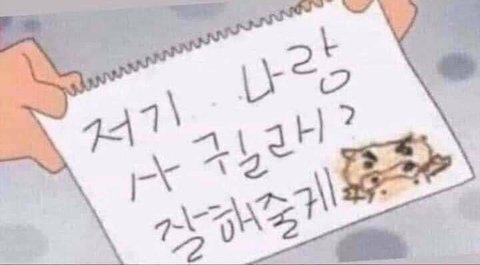 저기.. 나랑
사귈래?
잘해줄게